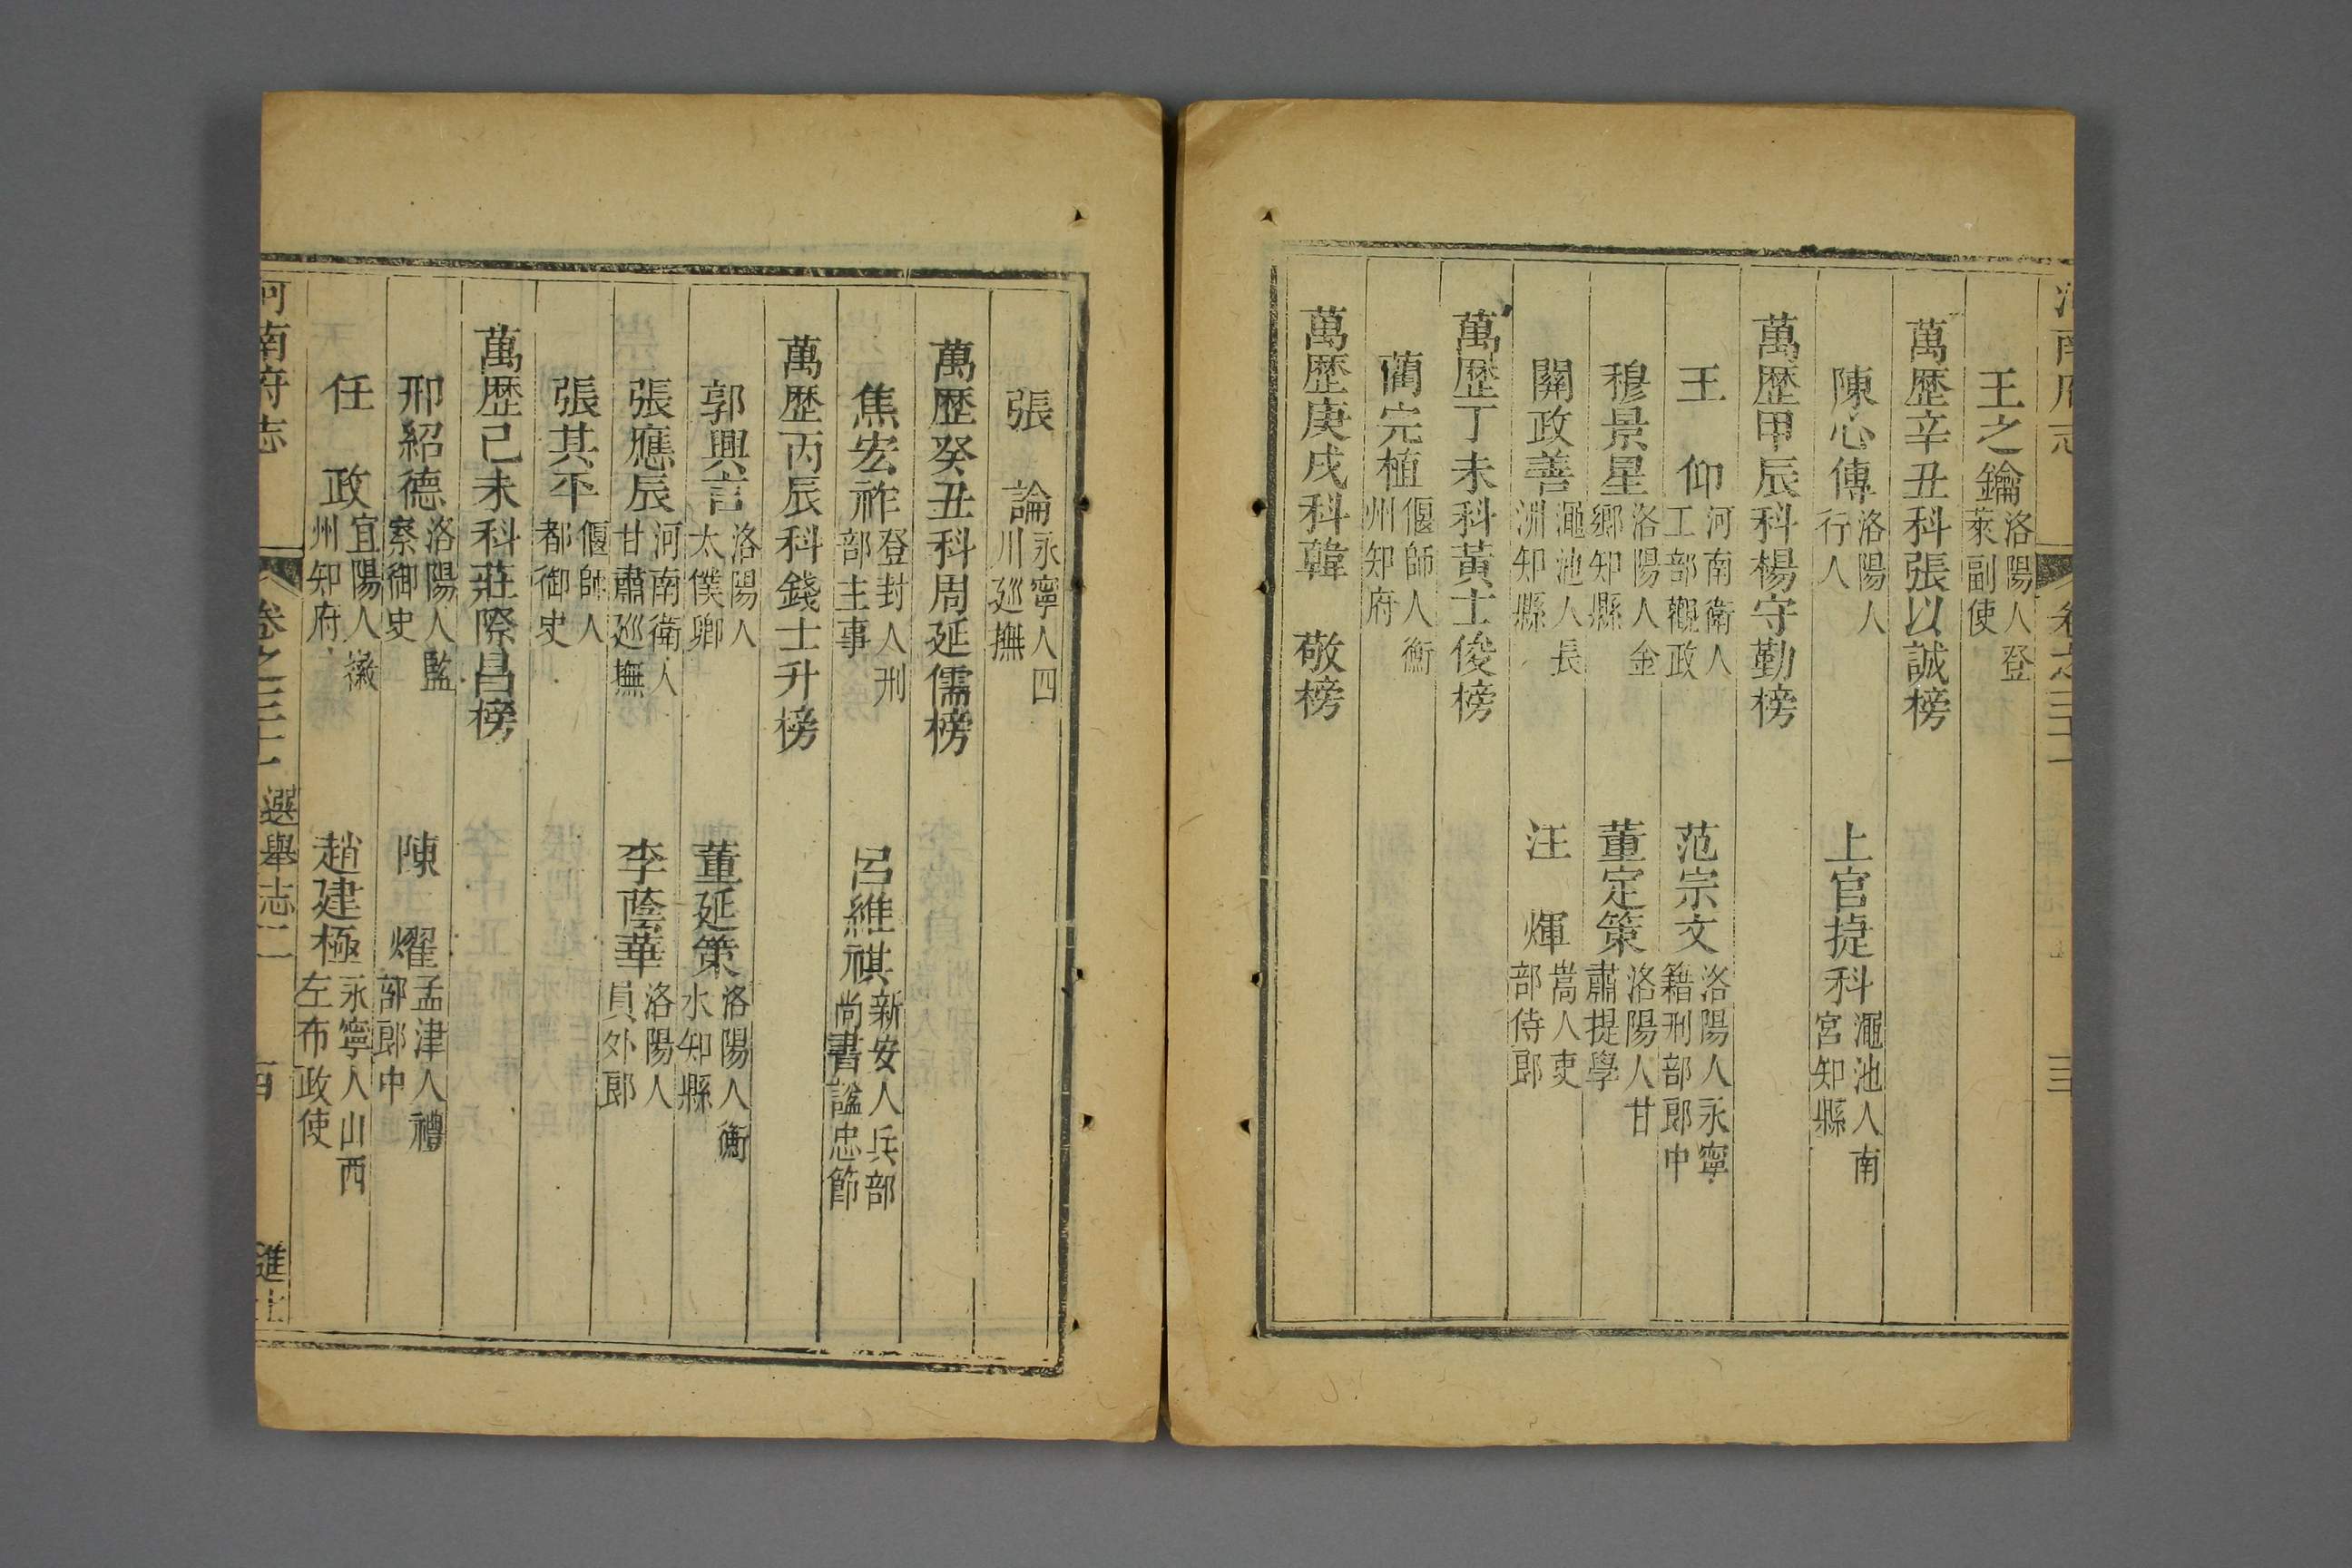 河南府志 卷之三十一 三
王之鑰 洛陽人登萊副使
萬歷辛丑科張以誠榜
陳心傳 洛陽人行人 上官捷科 澠池人南宮知縣
萬歷甲辰科楊守勤榜
王 仰 河南衛人工部觀政 范宗文 洛陽人永寧籍刑部郎中
穆景星 洛陽人金鄉知縣 董定策 洛陽人甘肅提學
關政善 澠池人長洲知縣 汪 煇 嵩人吏部侍郎
萬歷丁未科黃士俊榜
藺完植 偃師人衛州知府
萬歷庚戌科韓 敬榜
張 論 永寧人四川廵撫
萬歷癸丑科周延儒榜
焦宏祚 登封人刑部主事 呂維祺 新安人兵部尚書諡忠節
萬歷丙辰科錢士升榜
郭興言 洛陽人太僕卿 董延策 洛陽人衡水知縣
張應辰 河南衛人甘肅廵撫 李蔭華 洛陽人員外郎
張其平 偃師人都御史
萬歷己未科莊際昌榜
邢紹德 洛陽人監察御史 陳 燿 孟津人禮部郎中
任 政 宜陽人徽州知府 趙建極 永寧人山西左布政使
河南府志 卷之三十一 選舉志二 進士